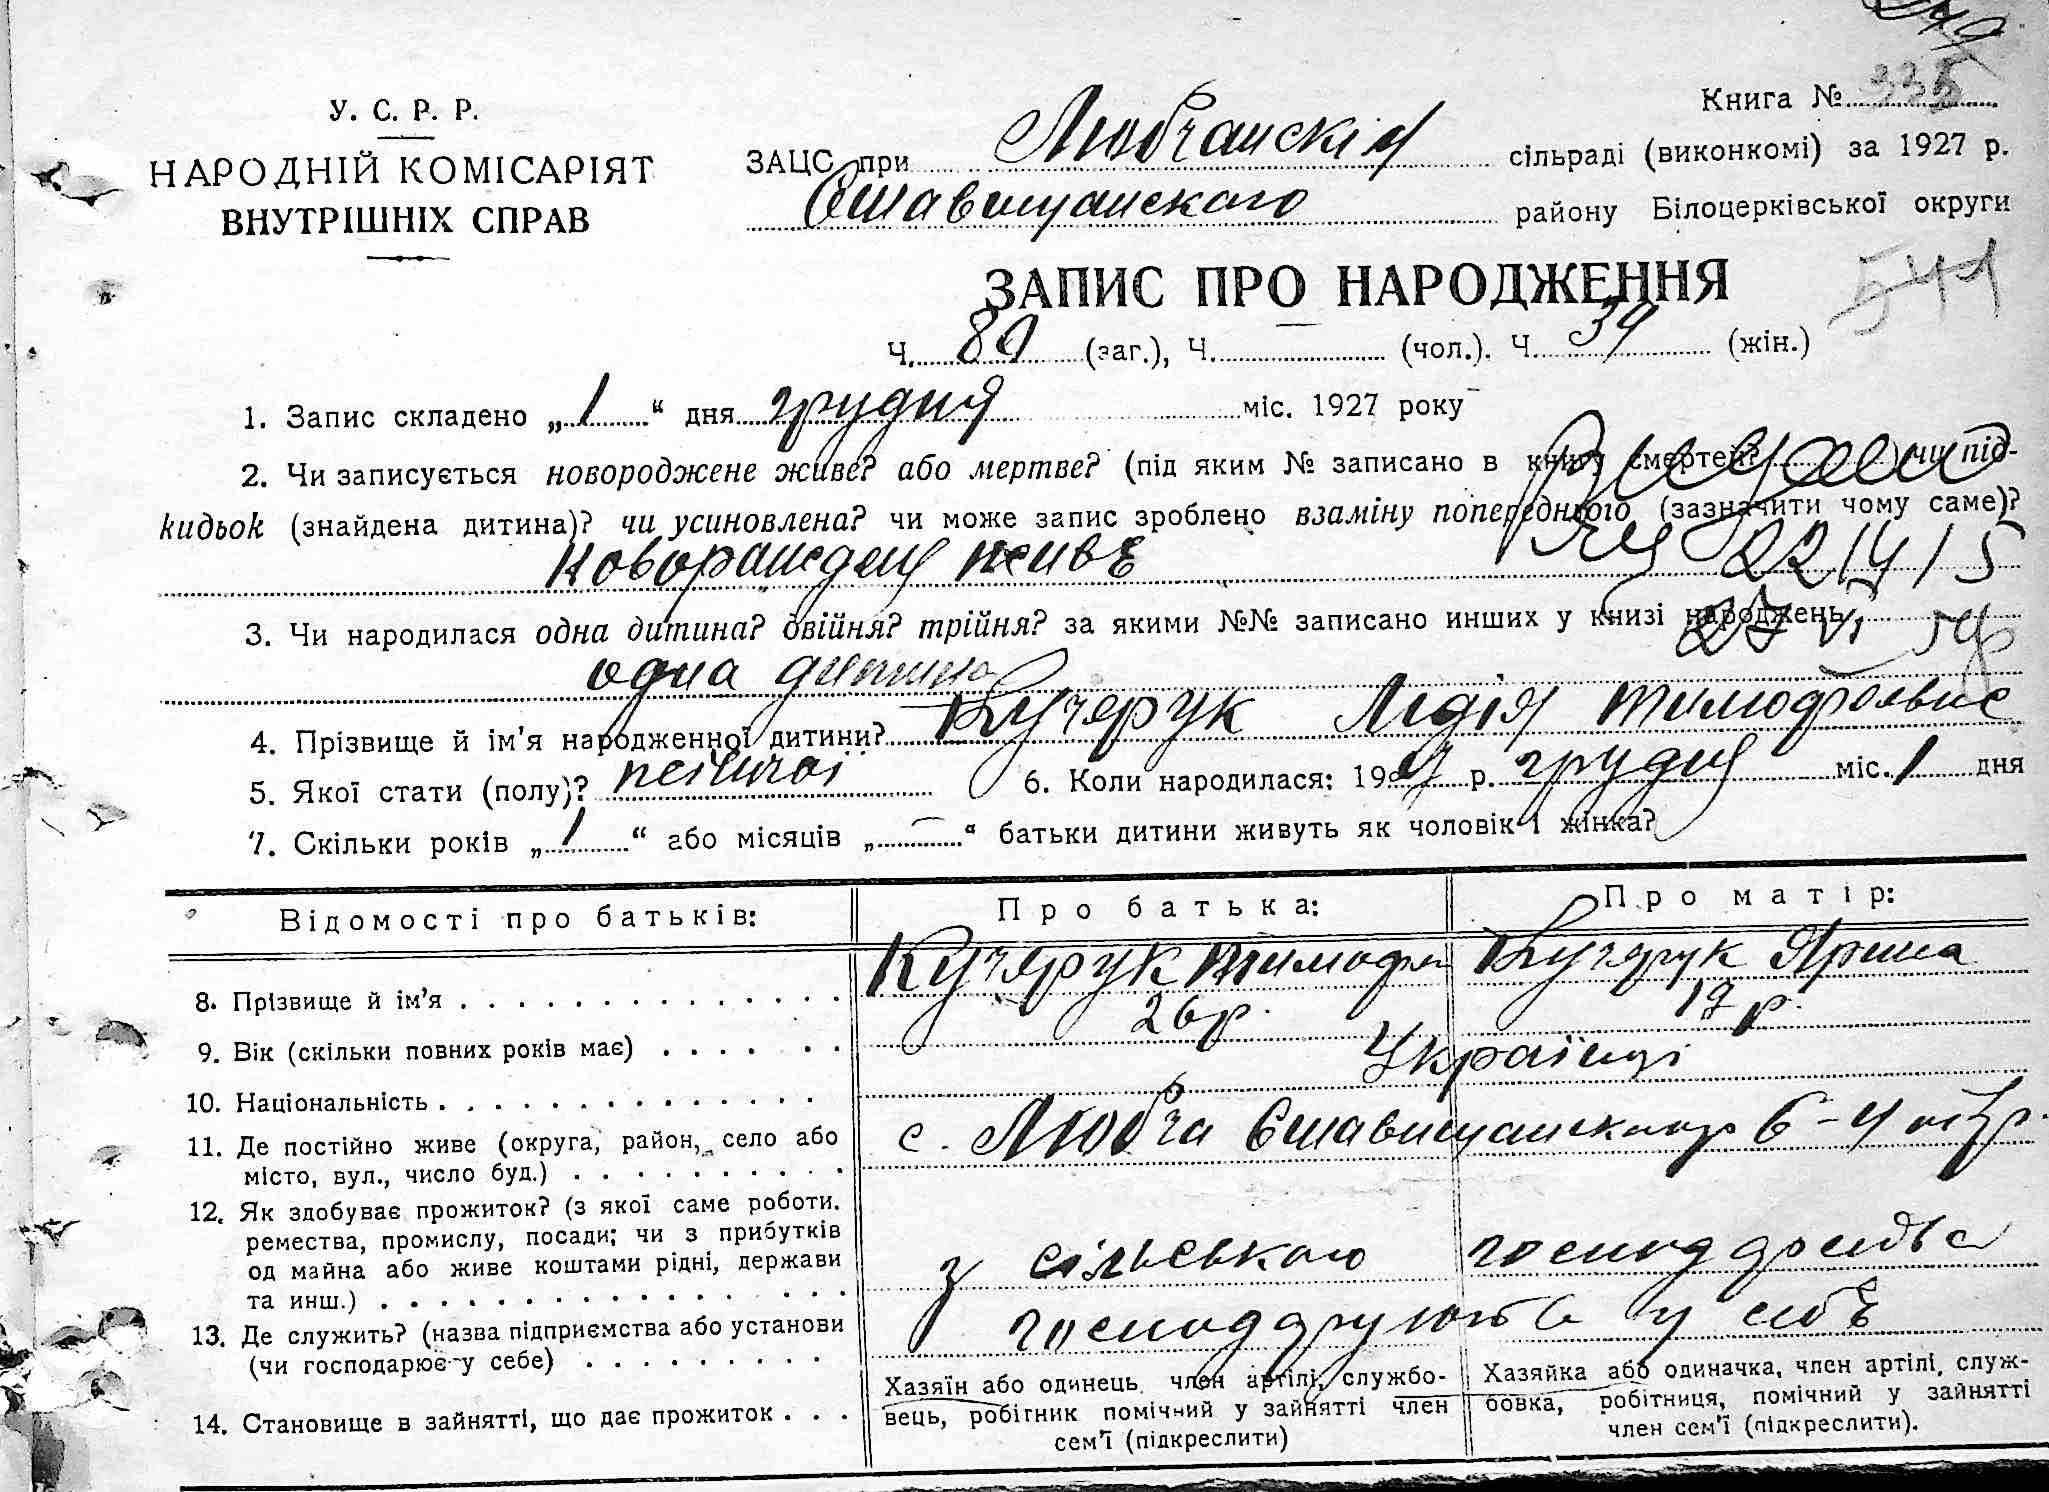 У. С. Р. Р.
НАРОДНІЙ КОМІСАРІЯТ
ВНУТРІШНІХ СПРАВ
Книга №
ЗАЦС при Любчанскій сільраді (виконкомі) за 1927 р.
Ставищанского району Білоцерківської округи
ЗАПИС ПРО НАРОДЖЕННЯ
541
Ч. 80 (заг.), Ч. (чол.). Ч. 39 (жін.)
1. Запис складено „1“ дня грудня міс. 1927 року
2. Чи записується новороджене живе? або мертве? (під яким № записано в книгу смертей? ) чи під-
кидьок (знайдена дитина)? чи усиновлена? чи може запис зроблено взаміну попереднього (зазначити чому саме)?
живе
3. Чи народилася одна дитина? двійня? трійня? за якими №№ записано инших у книзі народжень
одна дитина
4. Прізвище й ім'я народженної дитини? Кучерук Лидія Тимофеевна
5. Якої стати (полу)? жіночої 6. Коли народилася: 1927 р. грудня міс. 1 дня
7. Скільки років „1“ або місяців „—“ батьки дитини живуть як чоловік і жінка?
Відомості про батьків: Про батька: Про матір:
8. Прізвище й ім'я Кучерук Тимофей Кучерук Ярина
9. Вік (скільки повних років має) 26 р. 19 р.
10. Національність Українці
11. Де постійно живе (округа, район, село або
місто, вул., число буд.) с. Любча Ставищанского
12. Як здобуває прожиток? (з якої саме роботи.
ремества, промислу, посади; чи з прибутків
од майна або живе коштами рідні, держави
та инш.) з сільського господарства
13. Де служить? (назва підприємства або установи
(чи господарює у себе) господарують у себе
14. Становище в зайнятті, що дає прожиток
Хазяїн або одинець, член артілі, службо-
вець, робітник помічний у зайнятті член
сем'ї (підкреслити)
Хазяйка або одиначка, член артілі, служ-
бовка, робітниця, помічний у зайнятті
член сем'ї (підкреслити).